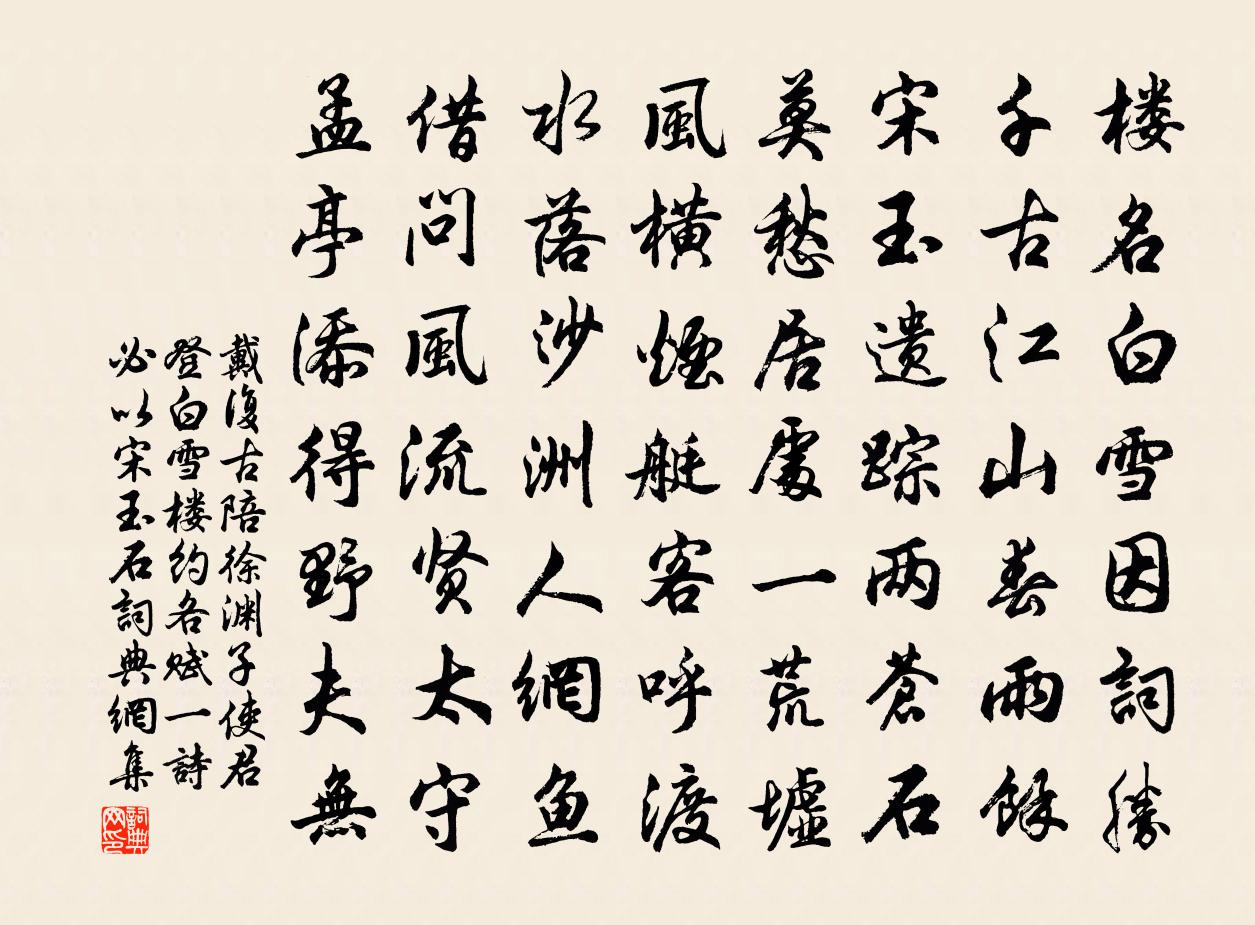 楼名白雪因詞勝
千古江山春雨餘
宋玉遗踪两蒼石
莫愁居處一荒墟
風横煙艇客呼渡
水落沙洲人網魚
借问風流贤太守
孟亭添得野夫無
戴復古陪徐渊子使君
登白雪楼约各赋一詩
必以宋玉石詞典網集
詞典
网印